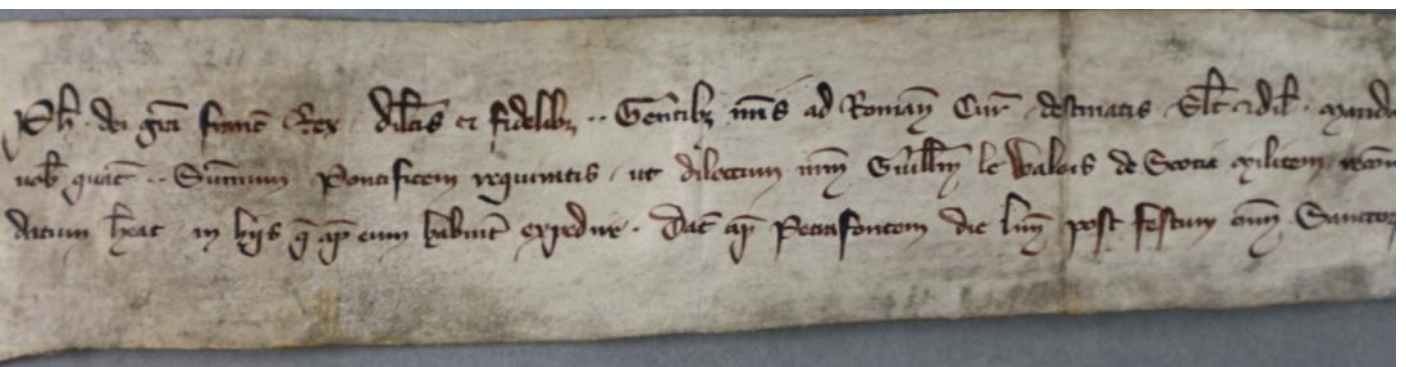 Ph̄. dei gr̄a franc̄ Rex dil̄cis et fidelibꝫ .. Gentibꝫ nr̄is ad Romanā Cur̄ destinatis Sal̄t et dil̄. mand
vob̄ quat̄ .. Summum Pontificem requiratis ut dilectum nr̄m Guill̄m le Walois de Scocia militem recōm
datum habeat in hijs q̄ ap̄ eum habuit expedire. Dat̄ ap̄ Petrafontem die lun̄ post festum om̄ Sanctoꝝ